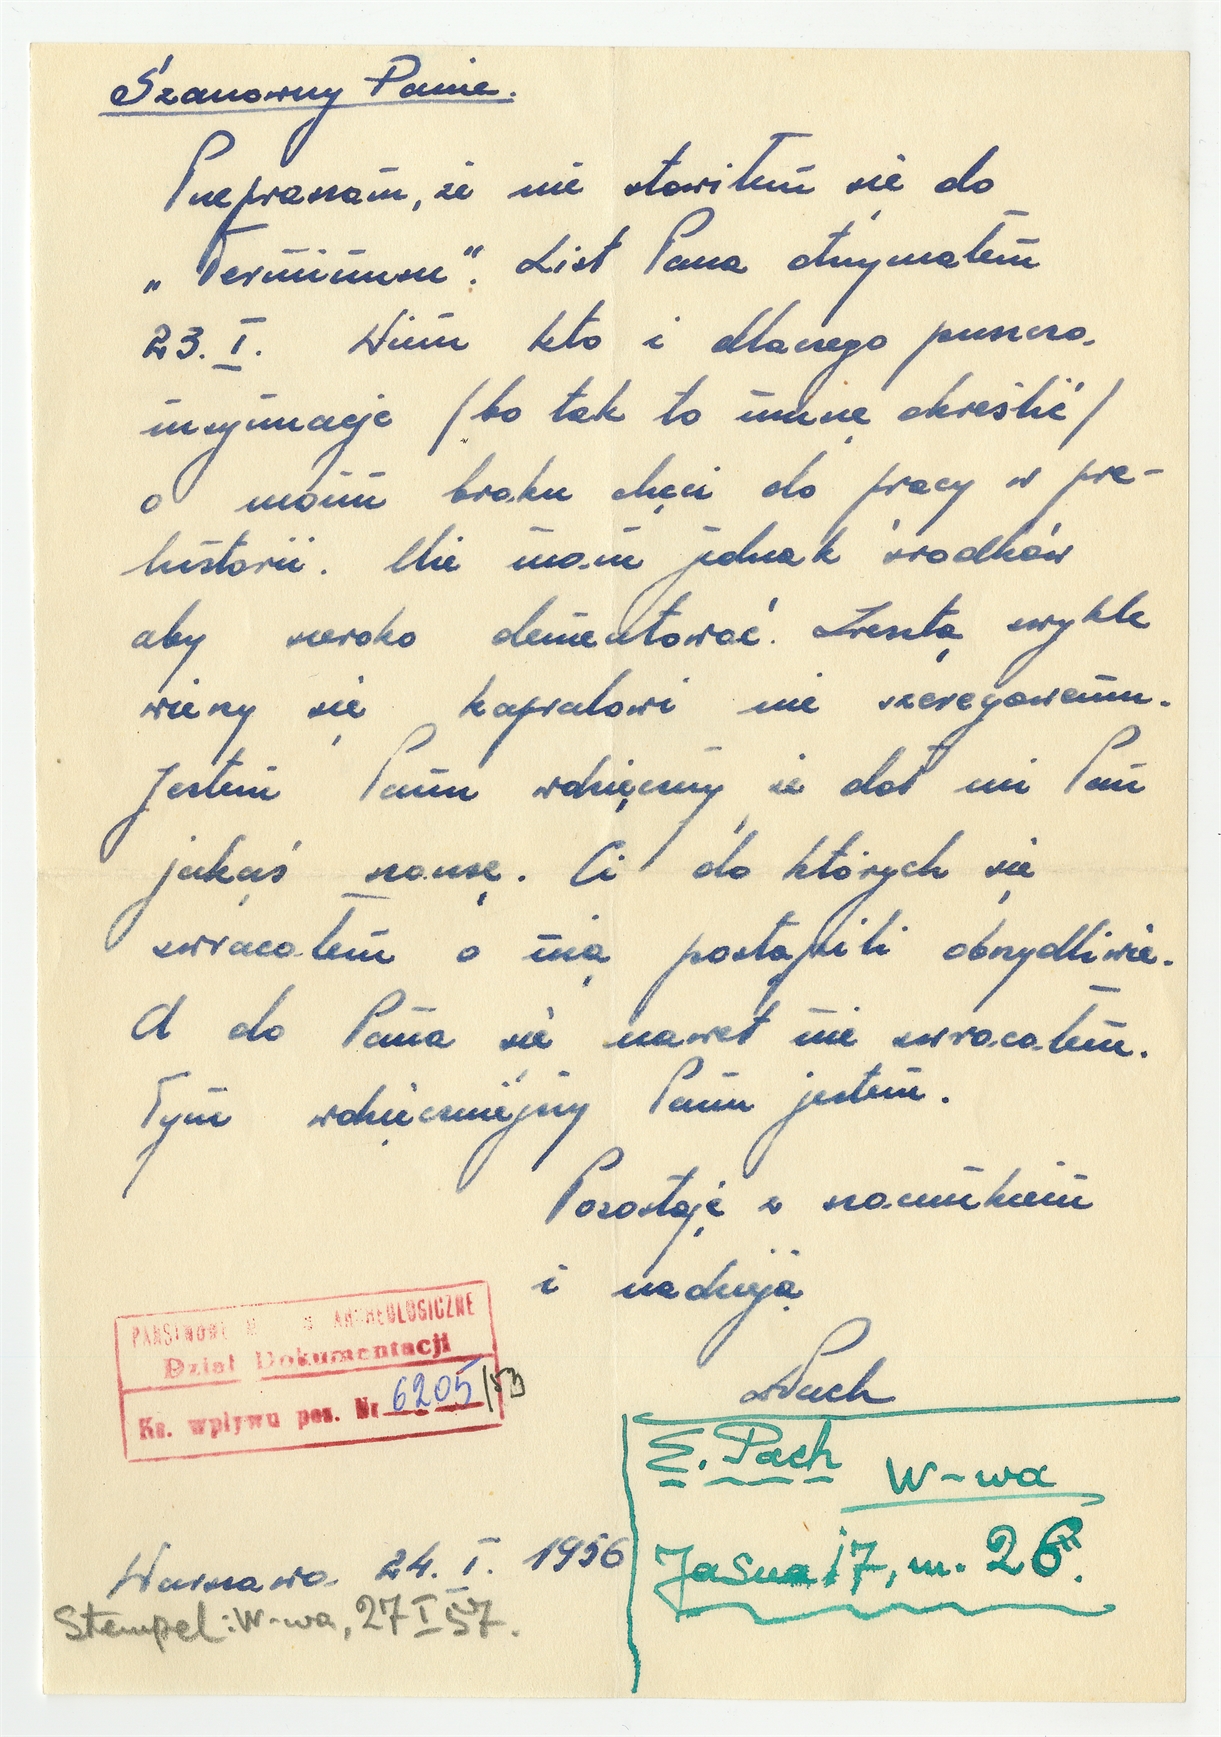 Szanowny Panie.
Przepraszam, że nie stawiłem się do
„Terminusu". List Pana otrzymałem
23. I. Wiem kto i dlaczego puszcza
insynuacje /bo tak to muszę określić/
o moim braku chęci do pracy w pre-
historii. Nie mam jednak środków
aby szeroko dementować. Zresztą zwykle
wierzy się kapralowi nie szeregowemu.
Jestem Panu wdzięczny że dał mi Pan
jakąś szansę. Ci do których się
zwracałem o nią postąpili obrzydliwie.
A do Pana się nawet nie zwracałem.
Tym wdzięczniejszy Panu jestem.
Pozostaję z szacunkiem
i nadzieją
Pach
PAŃSTWOWE M S ARCHEOLOGICZNE
Dział Dokumentacji
Ks. wpływu poz. Nr 6205/53
E. Pach
W-wa
Jasna 17, m. 26.
Warszawa 24. I. 1956
Stempel: W-wa, 27 I 57.